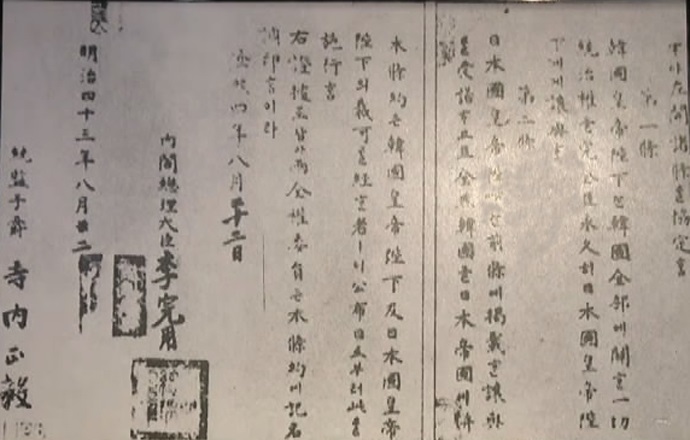 左開諸條를協定홈
第一條
韓國皇帝陛下는韓國全部에關한一切
統治權을完全且永久히日本國皇帝陛
下에게讓與홈
第二條
日本國皇帝陛下는前條에揭載한讓與
를受諾하고且全然韓國을日本帝國에倂
本條約은韓國皇帝陛下及日本國皇帝
陛下의裁可를經한者이니公布日로부터此를
施行홈
右證據로삼아兩全權委員은本條約에記名
調印홈이라
隆熙四年八月二十二日
內閣總理大臣李完用
明治四十三年八月廿二
統監子爵 寺內正毅